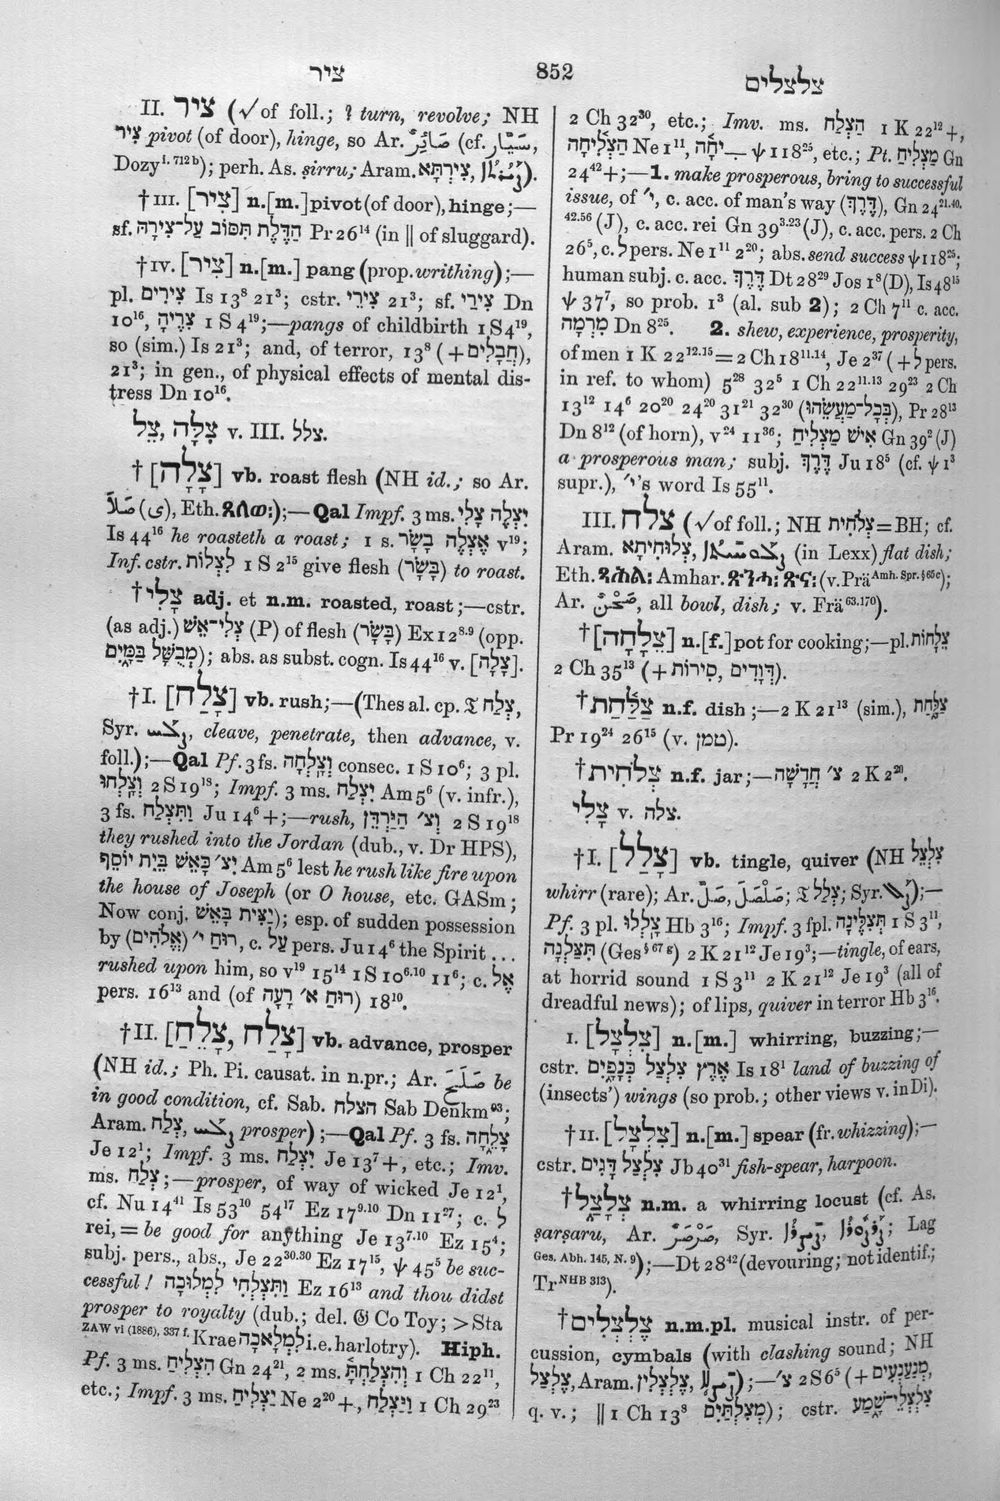 ציר
852
צלצלים
II. ציר (√of foll.; ? turn, revolve; NH
צִיר pivot (of door), hinge, so Ar. صَائِرٌ (cf. سَيَّار,
Dozy I. 712 b); perh. As. ṣirru; Aram. צִירְתָּא,
†III. [צִיר] n.[m.] pivot (of door), hinge;—
sf. הַדֶּלֶת תִּסּוֹב עַל־צִירָהּ Pr 26¹⁴ (in ‖ of sluggard).
†IV. [צִיר] n.[m.] pang (prop. writhing);—
pl. צִירִים Is 13⁸ 21³; cstr. צִירֵי 21³; sf. צִירַי Dn
10¹⁶, צִרֶיהָ 1 S 4¹⁹;—pangs of childbirth 1 S 4¹⁹,
so (sim.) Is 21³; and, of terror, 13⁸ (+חֲבָלִים),
21³; in gen., of physical effects of mental dis-
tress Dn 10¹⁶.
צִלָּה, צֵל v. III. צלל.
†[צָלָה] vb. roast flesh (NH id.; so Ar.
صَلَا (ى), Eth. ጸለወ:);—Qal Impf. 3 ms. יִצְלֶה צָלִי
Is 44¹⁶ he roasteth a roast; 1 s. אֶצְלֶה בָשָׂר v¹⁹;
Inf. cstr. לִצְלוֹת 1 S 2¹⁵ give flesh (בָּשָׂר) to roast.
†צָלִי adj. et n.m. roasted, roast;—cstr.
(as adj.) צְלִי־אֵשׁ (P) of flesh (בָּשָׂר) Ex 12⁸·⁹ (opp.
מְבֻשָּׁל בַּמָּיִם); abs. as subst. cogn. Is 44¹⁶ v. [צָלָה].
†I. [צָלַח] vb. rush;—(Thes al. cp. 𝔗 צְלַח,
Syr. ܨܠܚ, cleave, penetrate, then advance, v.
foll.);—Qal Pf. 3 fs. וְצָלְחָה consec. 1 S 10⁶; 3 pl.
וְצָלְחוּ 2 S 19¹⁸; Impf. 3 ms. יִצְלַח Am 5⁶ (v. infr.),
3 fs. וַתִּצְלַח Ju 14⁶+;—rush, וְצ׳ הַיַּרְדֵּן 2 S 19¹⁸
they rushed into the Jordan (dub., v. Dr HPS),
יִצ׳ כָּאֵשׁ בֵּית יוֹסֵף Am 5⁶ lest he rush like fire upon
the house of Joseph (or O house, etc. GASm;
Now conj. יַצִּית בָּאֵשׁ); esp. of sudden possession
by רוּחַ י׳ (אֱלֹהִים), c. עַל pers. Ju 14⁶ the Spirit ...
rushed upon him, so v¹⁹ 15¹⁴ 1 S 10⁶·¹⁰ 11⁶; c. אֶל
pers. 16¹³ and (of רוּחַ א׳ רָעָה) 18¹⁰.
†II. [צָלַח, צָלֵחַ] vb. advance, prosper
(NH id.; Ph. Pi. causat. in n.pr.; Ar. صَلَحَ be
in good condition, cf. Sab. הצלח Sab Denkm⁹³;
Aram. צְלַח, ܨܠܚ prosper);—Qal Pf. 3 fs. צָלְחָה
Je 12¹; Impf. 3 ms. יִצְלַח Je 13⁷+, etc.; Imv.
ms. צְלַח;—prosper, of way of wicked Je 12¹,
cf. Nu 14⁴¹ Is 53¹⁰ 54¹⁷ Ez 17⁹·¹⁰ Dn 11²⁷; c. לְ
rei, = be good for anything Je 13⁷·¹⁰ Ez 15⁴;
subj. pers., abs., Je 22³⁰·³⁰ Ez 17¹⁵, ψ 45⁵ be suc-
cessful! וַתִּצְלְחִי לִמְלוּכָה Ez 16¹³ and thou didst
prosper to royalty (dub.; del. 𝔊 Co Toy; >Sta
ZAW vi (1886), 337 f. Krae לִמְלָאכָה i.e. harlotry). Hiph.
Pf. 3 ms. הִצְלִיחַ Gn 24²¹, 2 ms. וְהִצְלַחְתָּ 1 Ch 22¹¹,
etc.; Impf. 3 ms. יַצְלִיחַ Ne 2²⁰+, וַיַּצְלַח 1 Ch 29²³
2 Ch 32³⁰, etc.; Imv. ms. הַצְלַח 1 K 22¹²+,
הַצְלִיחָה Ne 1¹¹, יחָה— ψ 118²⁵, etc.; Pt. מַצְלִיחַ Gn
24⁴²+;—1. make prosperous, bring to successful
issue, of י׳, c. acc. of man's way (דֶּרֶךְ), Gn 24²¹·⁴⁰·
⁴²·⁵⁶ (J), c. acc. rei Gn 39³·²³ (J), c. acc. pers. 2 Ch
26⁵, c. לְ pers. Ne 1¹¹ 2²⁰; abs. send success ψ 118²⁵;
human subj. c. acc. דֶּרֶךְ Dt 28²⁹ Jos 1⁸ (D), Is 48¹⁵
ψ 37⁷, so prob. 1³ (al. sub 2); 2 Ch 7¹¹ c. acc.
מִרְמָה Dn 8²⁵. 2. shew, experience, prosperity,
of men 1 K 22¹²·¹⁵ = 2 Ch 18¹¹·¹⁴, Je 2³⁷ (+לְ pers.
in ref. to whom) 5²⁸ 32⁵ 1 Ch 22¹¹·¹³ 29²³ 2 Ch
13¹² 14⁶ 20²⁰ 24²⁰ 31²¹ 32³⁰ (בְּכָל־מַעֲשֵׂהוּ), Pr 28¹³
Dn 8¹² (of horn), v²⁴ 11³⁶; אִישׁ מַצְלִיחַ Gn 39² (J)
a prosperous man; subj. דֶּרֶךְ Ju 18⁵ (cf. ψ 1³
supr.), י׳'s word Is 55¹¹.
III. צלח (√of foll.; NH צְלֹחִית=BH; cf.
Aram. צְלוּחִיתָא, (in Lexx) flat dish;
Eth. ጻሕል: Amhar. (v. Prä Amh. Spr. § 65 c);
Ar. صَحْنٌ, all bowl, dish; v. Frä 63. 170).
†[צֵלָחָה] n.[f.] pot for cooking;—pl. צֵלָחוֹת
2 Ch 35¹³ (+דְּוָדִים, סִירוֹת).
†צַלַּחַת n.f. dish;—2 K 21¹³ (sim.), צַלָּחַת
Pr 19²⁴ 26¹⁵ (v. טמן).
†צְלֹחִית n.f. jar;—צ׳ חֲדָשָׁה 2 K 2²⁰.
צָלִי v. צלה.
†I. [צָלַל] vb. tingle, quiver (NH צִלְצֵל
whirr (rare); Ar. صَلَّ, صَلْصَلَ; 𝔗 צְלַל; Syr. );—
Pf. 3 pl. צָלְלוּ Hb 3¹⁶; Impf. 3 fpl. תְּצִלֶּינָה 1 S 3¹¹,
תִּצַּלְנָה (Ges § 67 g) 2 K 21¹² Je 19³;—tingle, of ears,
at horrid sound 1 S 3¹¹ 2 K 21¹² Je 19³ (all of
dreadful news); of lips, quiver in terror Hb 3¹⁶.
I. [צְלָצַל] n.[m.] whirring, buzzing;—
cstr. אֶרֶץ צִלְצַל כְּנָפָיִם Is 18¹ land of buzzing of
(insects') wings (so prob.; other views v. in Di).
†II. [צְלָצַל] n.[m.] spear (fr. whizzing);—
cstr. צִלְצַל דָּגִים Jb 40³¹ fish-spear, harpoon.
†צְלָצַל n.m. a whirring locust (cf. As.
ṣarṣaru, Ar. صَرْصَرٌ, Syr. ; Lag
Ges. Abh. 145, N. 9);—Dt 28⁴² (devouring; not identif.;
Tr NHB 313).
†צֶלְצְלִים n.m.pl. musical instr. of per-
cussion, cymbals (with clashing sound; NH
צֶלְצַל, Aram. צֶלְצְלִין, );—צ׳ 2 S 6⁵ (+מְנַעַנְעִים,
q. v.; ‖ 1 Ch 13⁸ מְצִלְתַּיִם); cstr. צִלְצְלֵי־שֶׁמַע